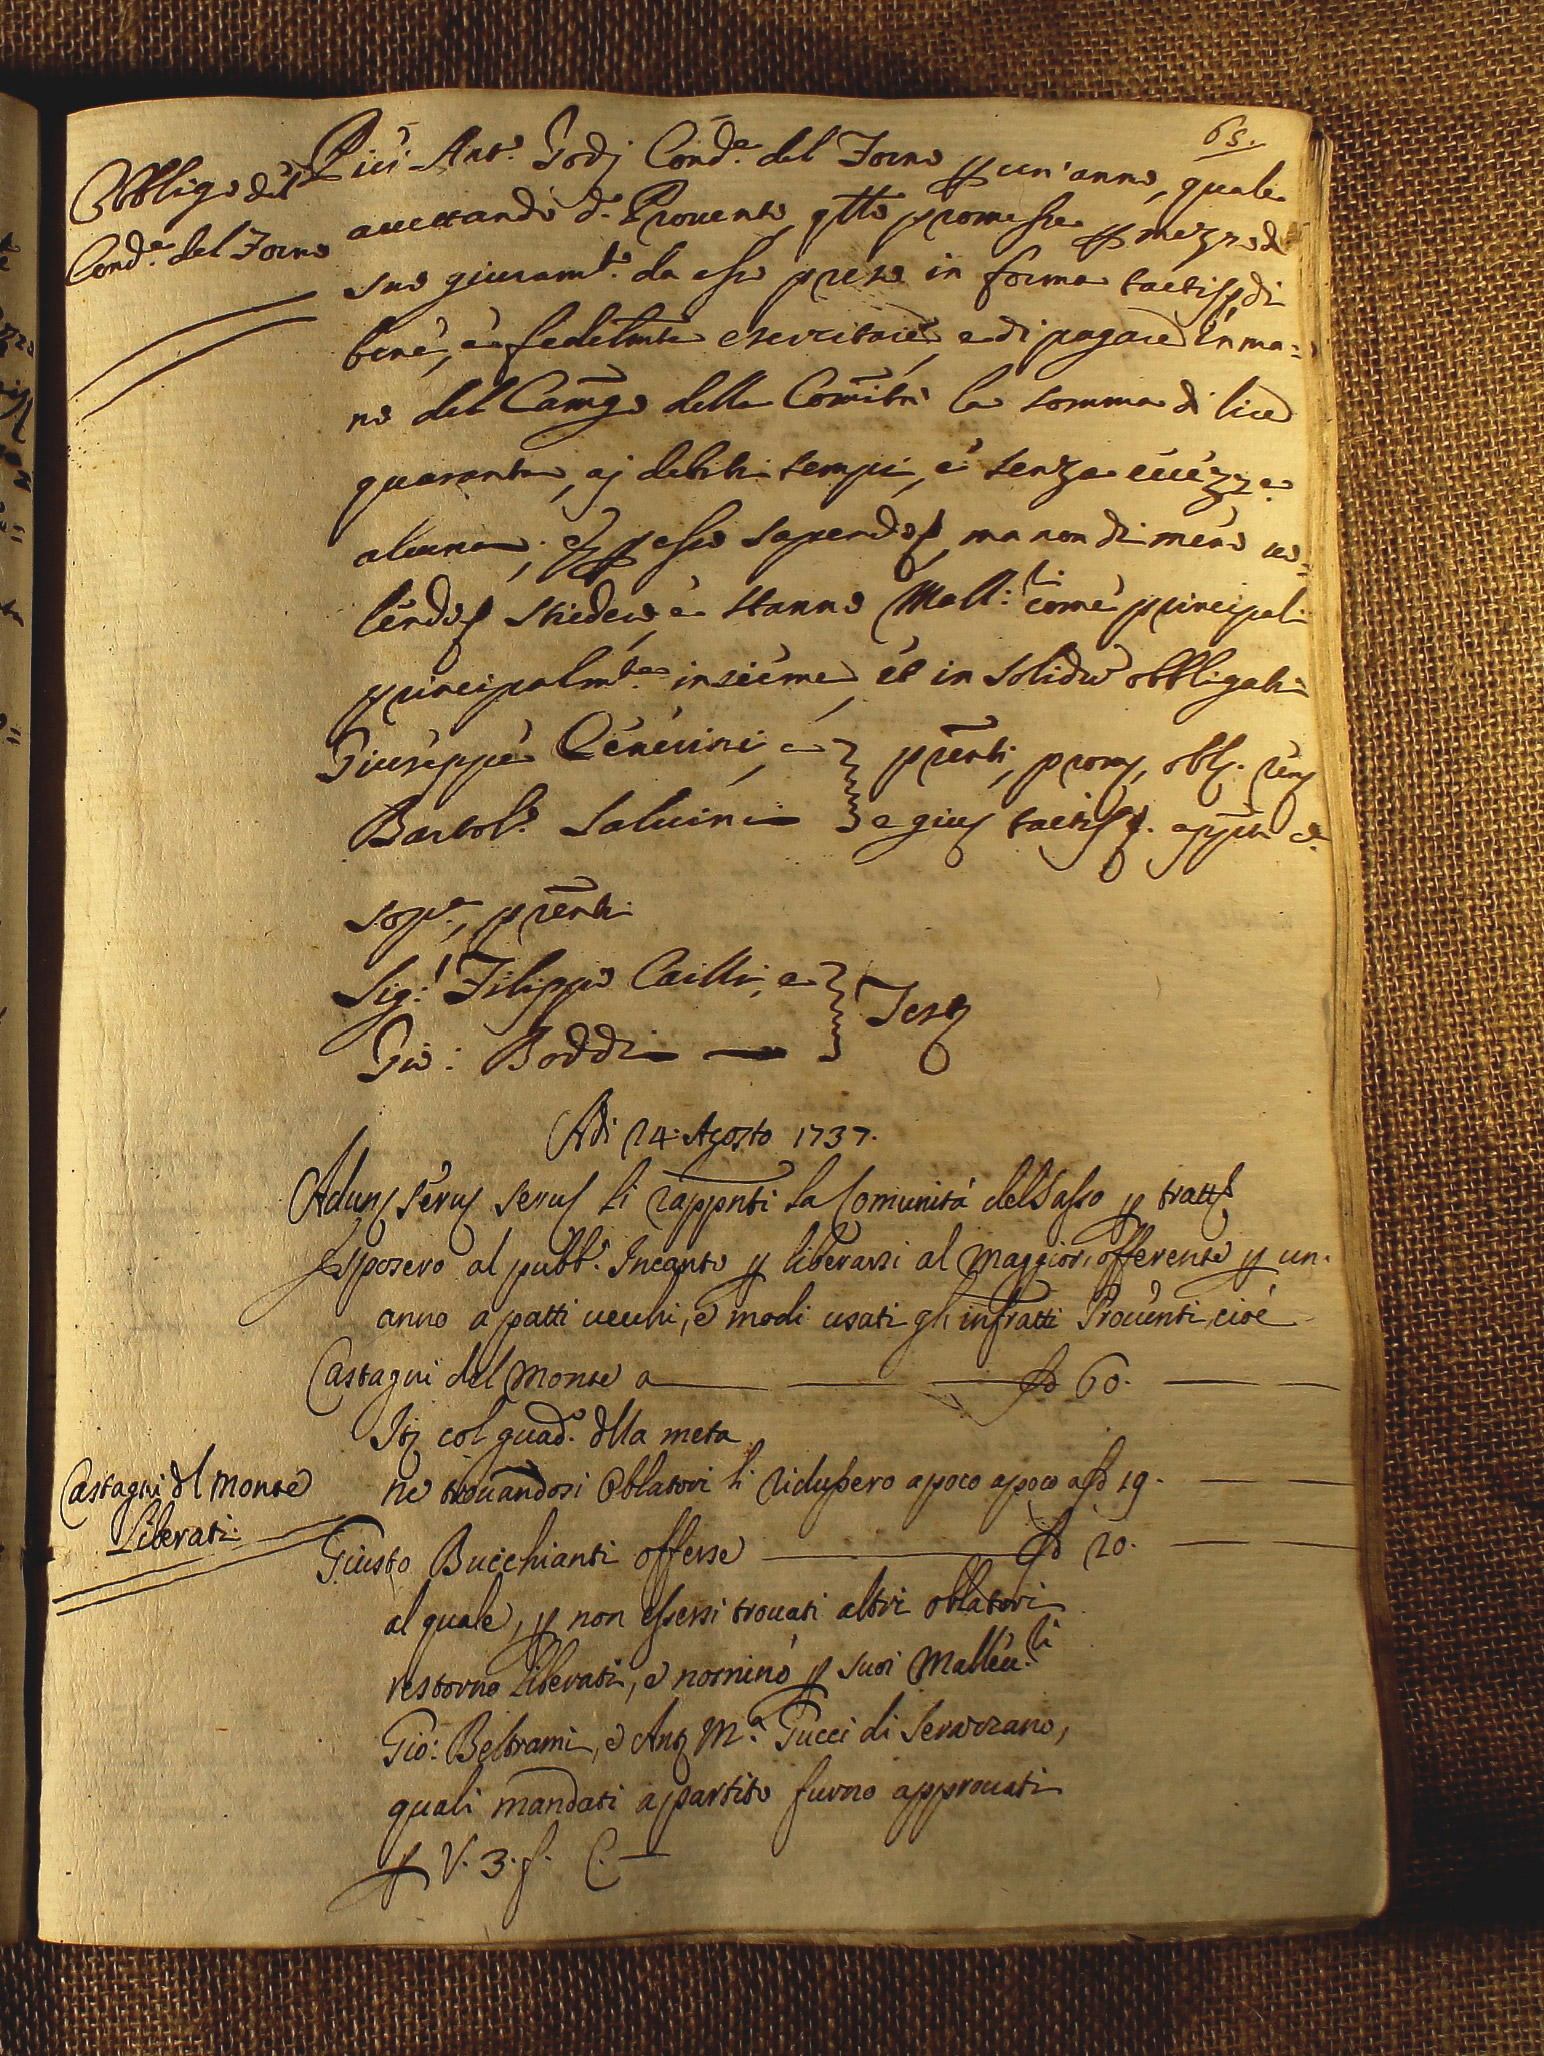 65.
Obbligo del
Cond.e del Forno
Pier Ant.o Godi Cond.e del Forno p un' anno, quale
accettando d.o Provento, q.tto promesse p mezzo di
suo giuram.to da esso preso in forma tactis, di
bene, e fedelmte esercitare, e di pagare in ma=
no del Camgo della Comità la somma di lire
quaranta, aj debiti tempi, e senza eccezze
alcuna; et p esso sapendo, ma non di meno vo=
lendo Stiedero, e Stanno Mall:ri come principali
principalmte insieme, et in solidu obbligati
Giuseppe Cenerini, e
Bartol.o Salvini
prenti, prom, obb. ren
e giur tactis. app.ti e
sop.a, prenti
Sig:r Filippo Cailli, e
Gio: Boddi
Test
Adi 24. Agosto 1737.
Adun serv serv li rapprnti la Comunità del Sasso p tratt
Esposero al pubb.o Incanto p liberarsi al maggior offerente p un
anno a patti vecchi, e modi usati gli infratti Proventi, cioè
Castagni del Monte a 60.
It col guad.o dlla meta
Castagni dl monte
Liberati
ne trovandosi Oblatori li ridussero a poco a poco a 19.
Giusto Bucchianti offerse 20.
al quale, p non essersi trovati altri oblatori
restorno liberati, e nominò p suoi Mallev.ri
Gio: Beltrami, e Ant M.a Tucci di Serazzano,
quali mandati a partito furno approvati
p V. 3. f. C.